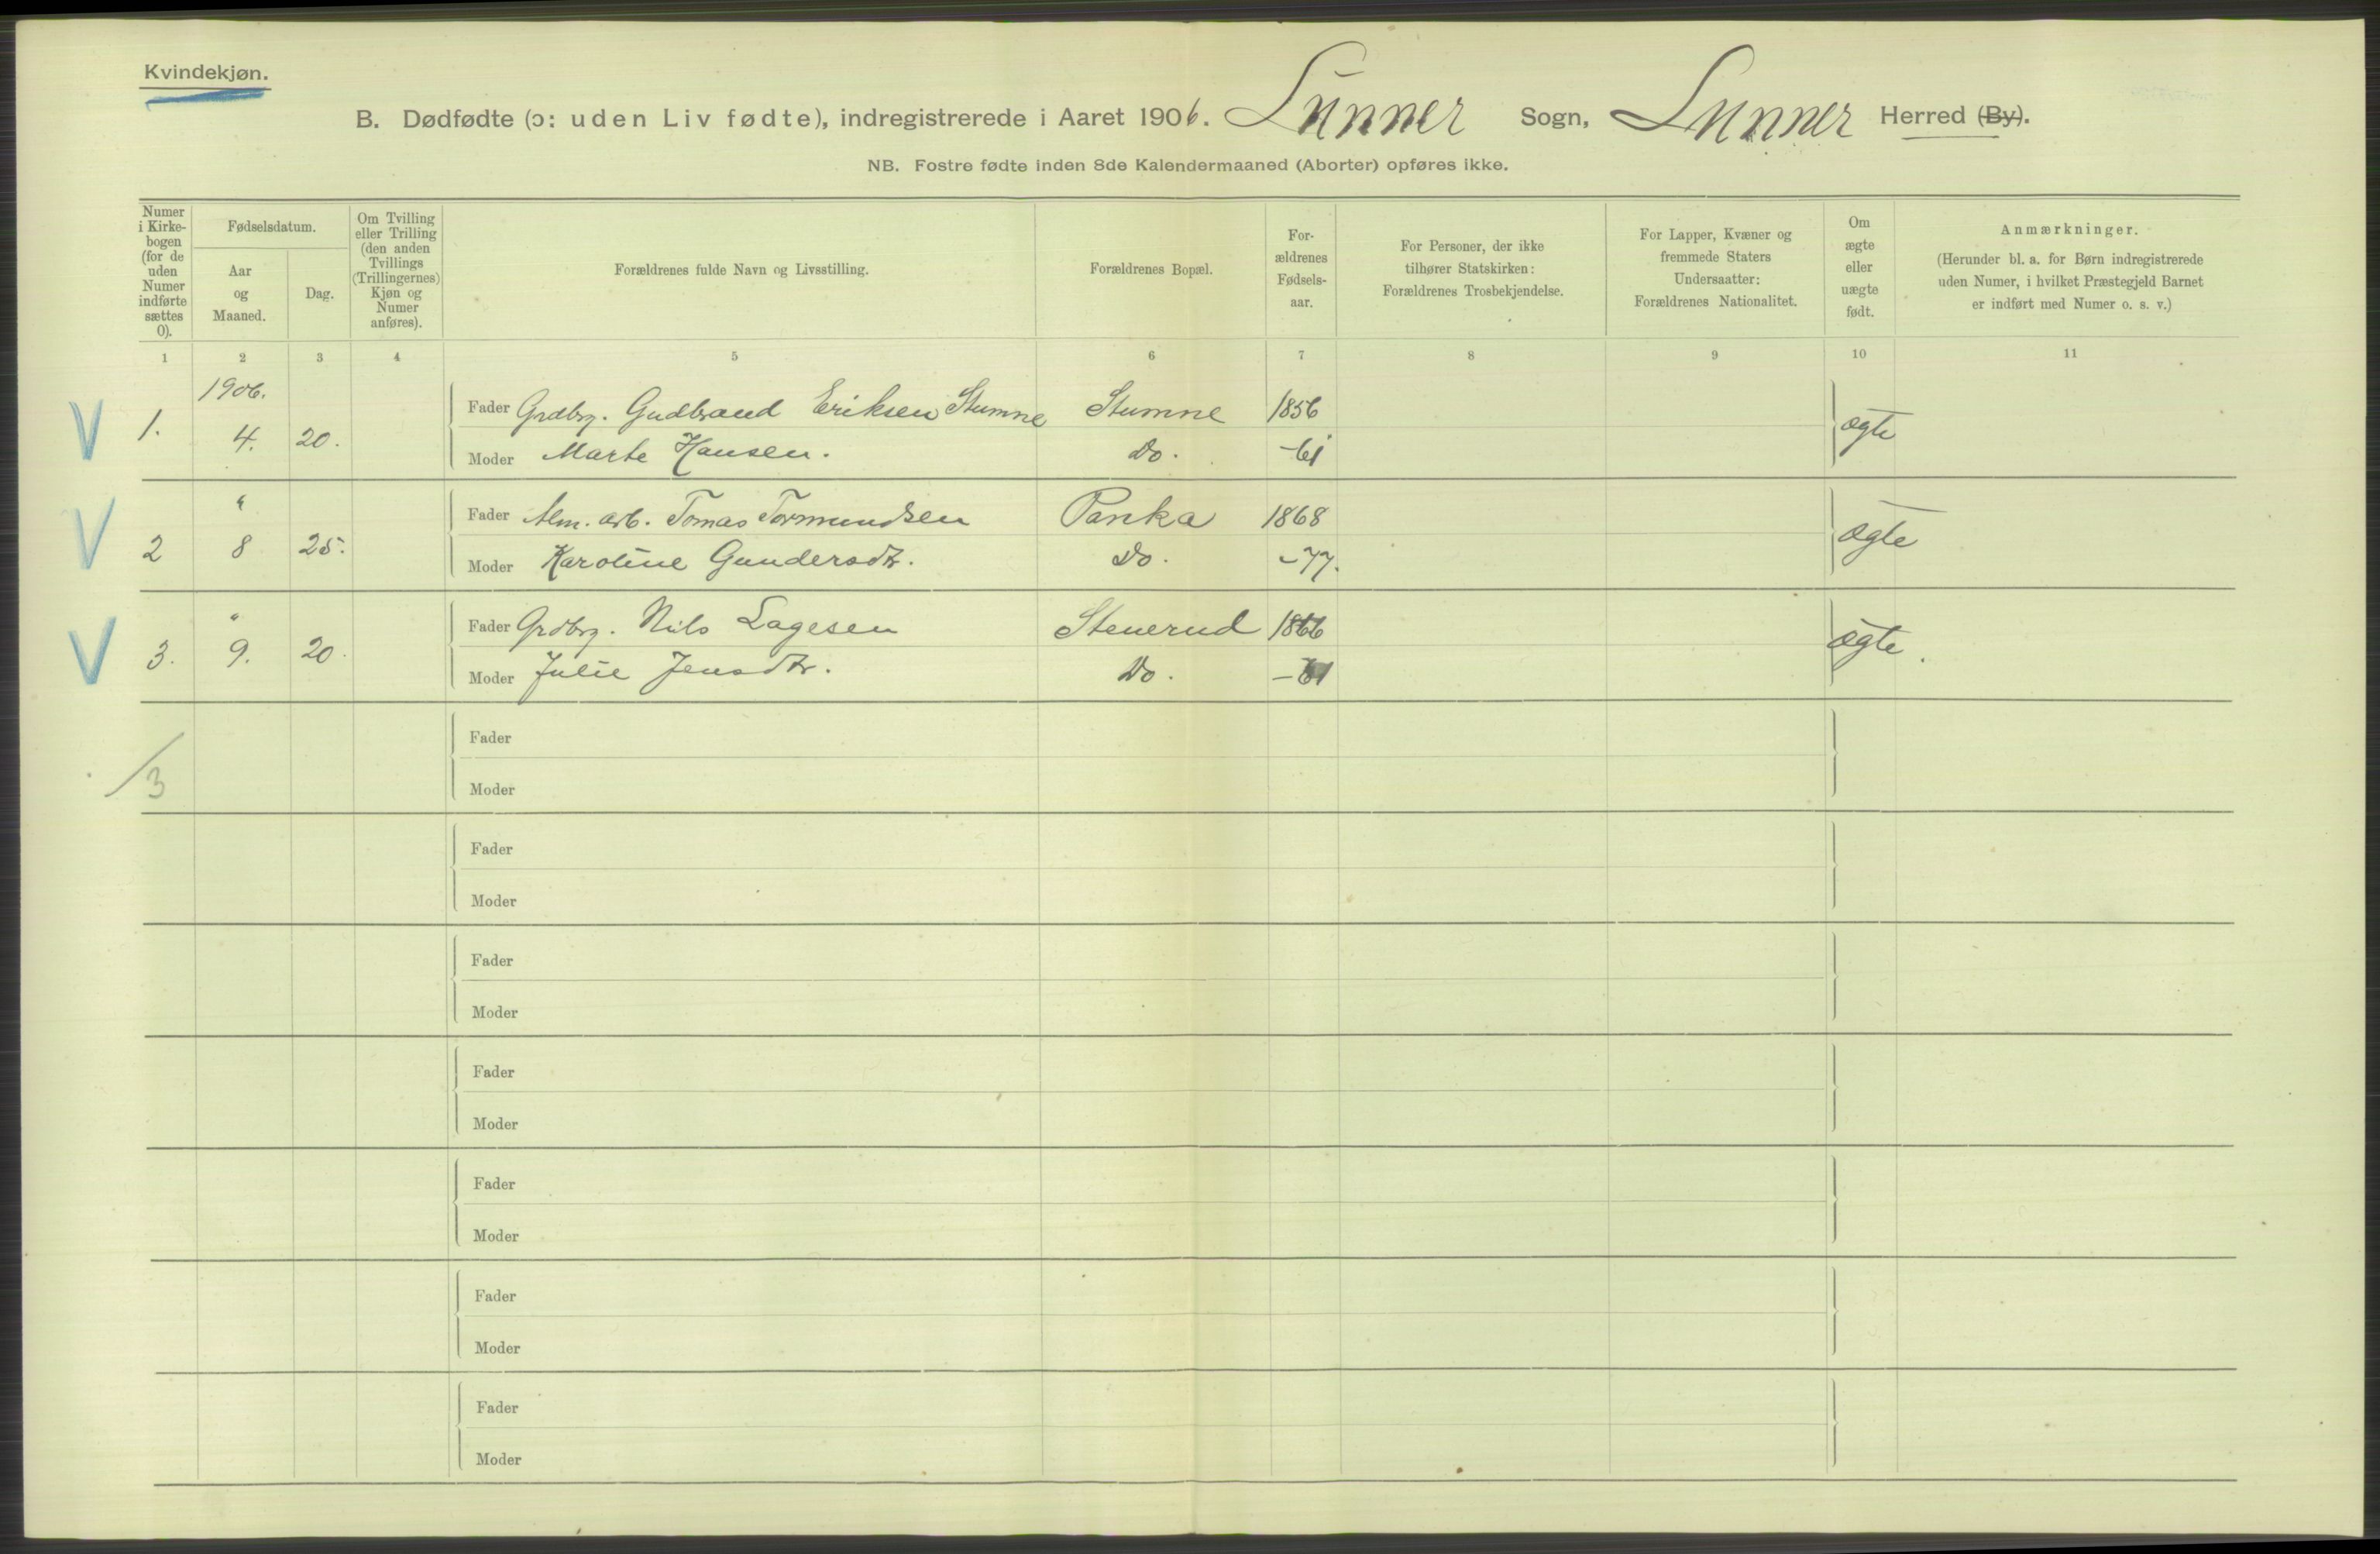 Kvindekjøn.
B. Dødfødte (ɔ: uden Liv fødte), indregistrerede i Aaret 1906. Lunner Sogn, Lunner Herred (By).
NB. Fostre fødte inden 8de Kalendermaaned (Aborter) opføres ikke.
Numer i Kirke-bogen (for de uden Numer indførte sættes 0).
Fødselsdatum.
Aar og Maaned.
Dag.
Om Tvilling eller Trilling (den anden Tvillings (Trillingernes) Kjøn og Numer anføres).
Forældrenes fulde Navn og Livsstilling.
Forældrenes Bopæl.
For-ældrenes Fødsels-aar.
For Personer, der ikke tilhører Statskirken: Forældrenes Trosbekjendelse.
For Lapper, Kvæner og fremmede Staters Undersaatter: Forældrenes Nationalitet.
Om ægte eller uægte født.
Anmærkninger.
(Herunder bl. a. for Børn indregistrerede uden Numer, i hvilket Præstegjeld Barnet er indført med Numer o. s. v.)
1 2 3 4 5 6 7 8 9 10 11
1906.
V 1. 4. 20. Fader Grdbrg. Gudbrand Eriksen Stumne Stumne 1856 ægte
Moder Marte Hansen. Do. -61
"
V 2 8 25. Fader Alm. arb. Tomas Tormundsen Panka 1868 ægte
Moder Karoline Gundersdtr. Do. -77.
"
V 3. 9. 20. Fader Grdbrg. Nils Lagesen Stenerud 1866 ægte.
Moder Julie Jensdtr. Do.
Fader
/3
Moder
Fader
Moder
Fader
Moder
Fader
Moder
Fader
Moder
Fader
Moder
Fader
Moder